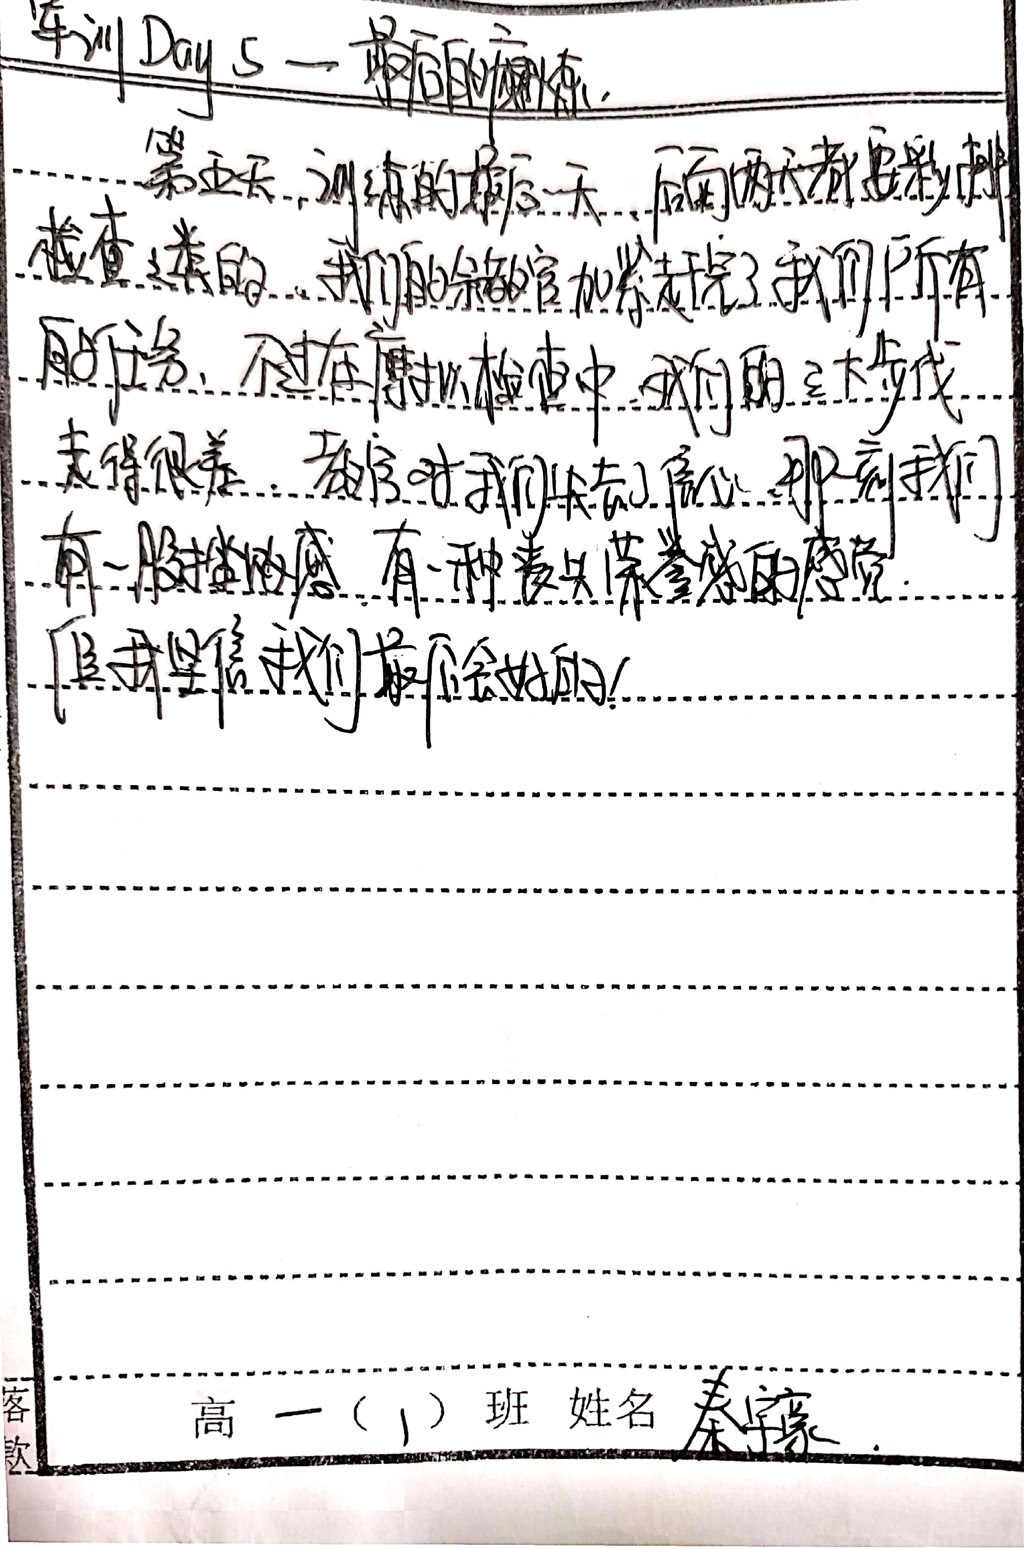 军训 Day 5 — 最后的磨炼.
第五天，训练的最后一天，后面两天都要彩排
检查之类的，我们的余教官加紧赶完了我们所有
的任务，不过在模拟检查中，我们的三大步伐
走得很差，教官对我们失去了信心，那一刻我们
有一股挫败感，有一种丧失荣誉感的感觉.
但我坚信我们最后会好的！
落款
高一（1）班 姓名 秦宇豪.